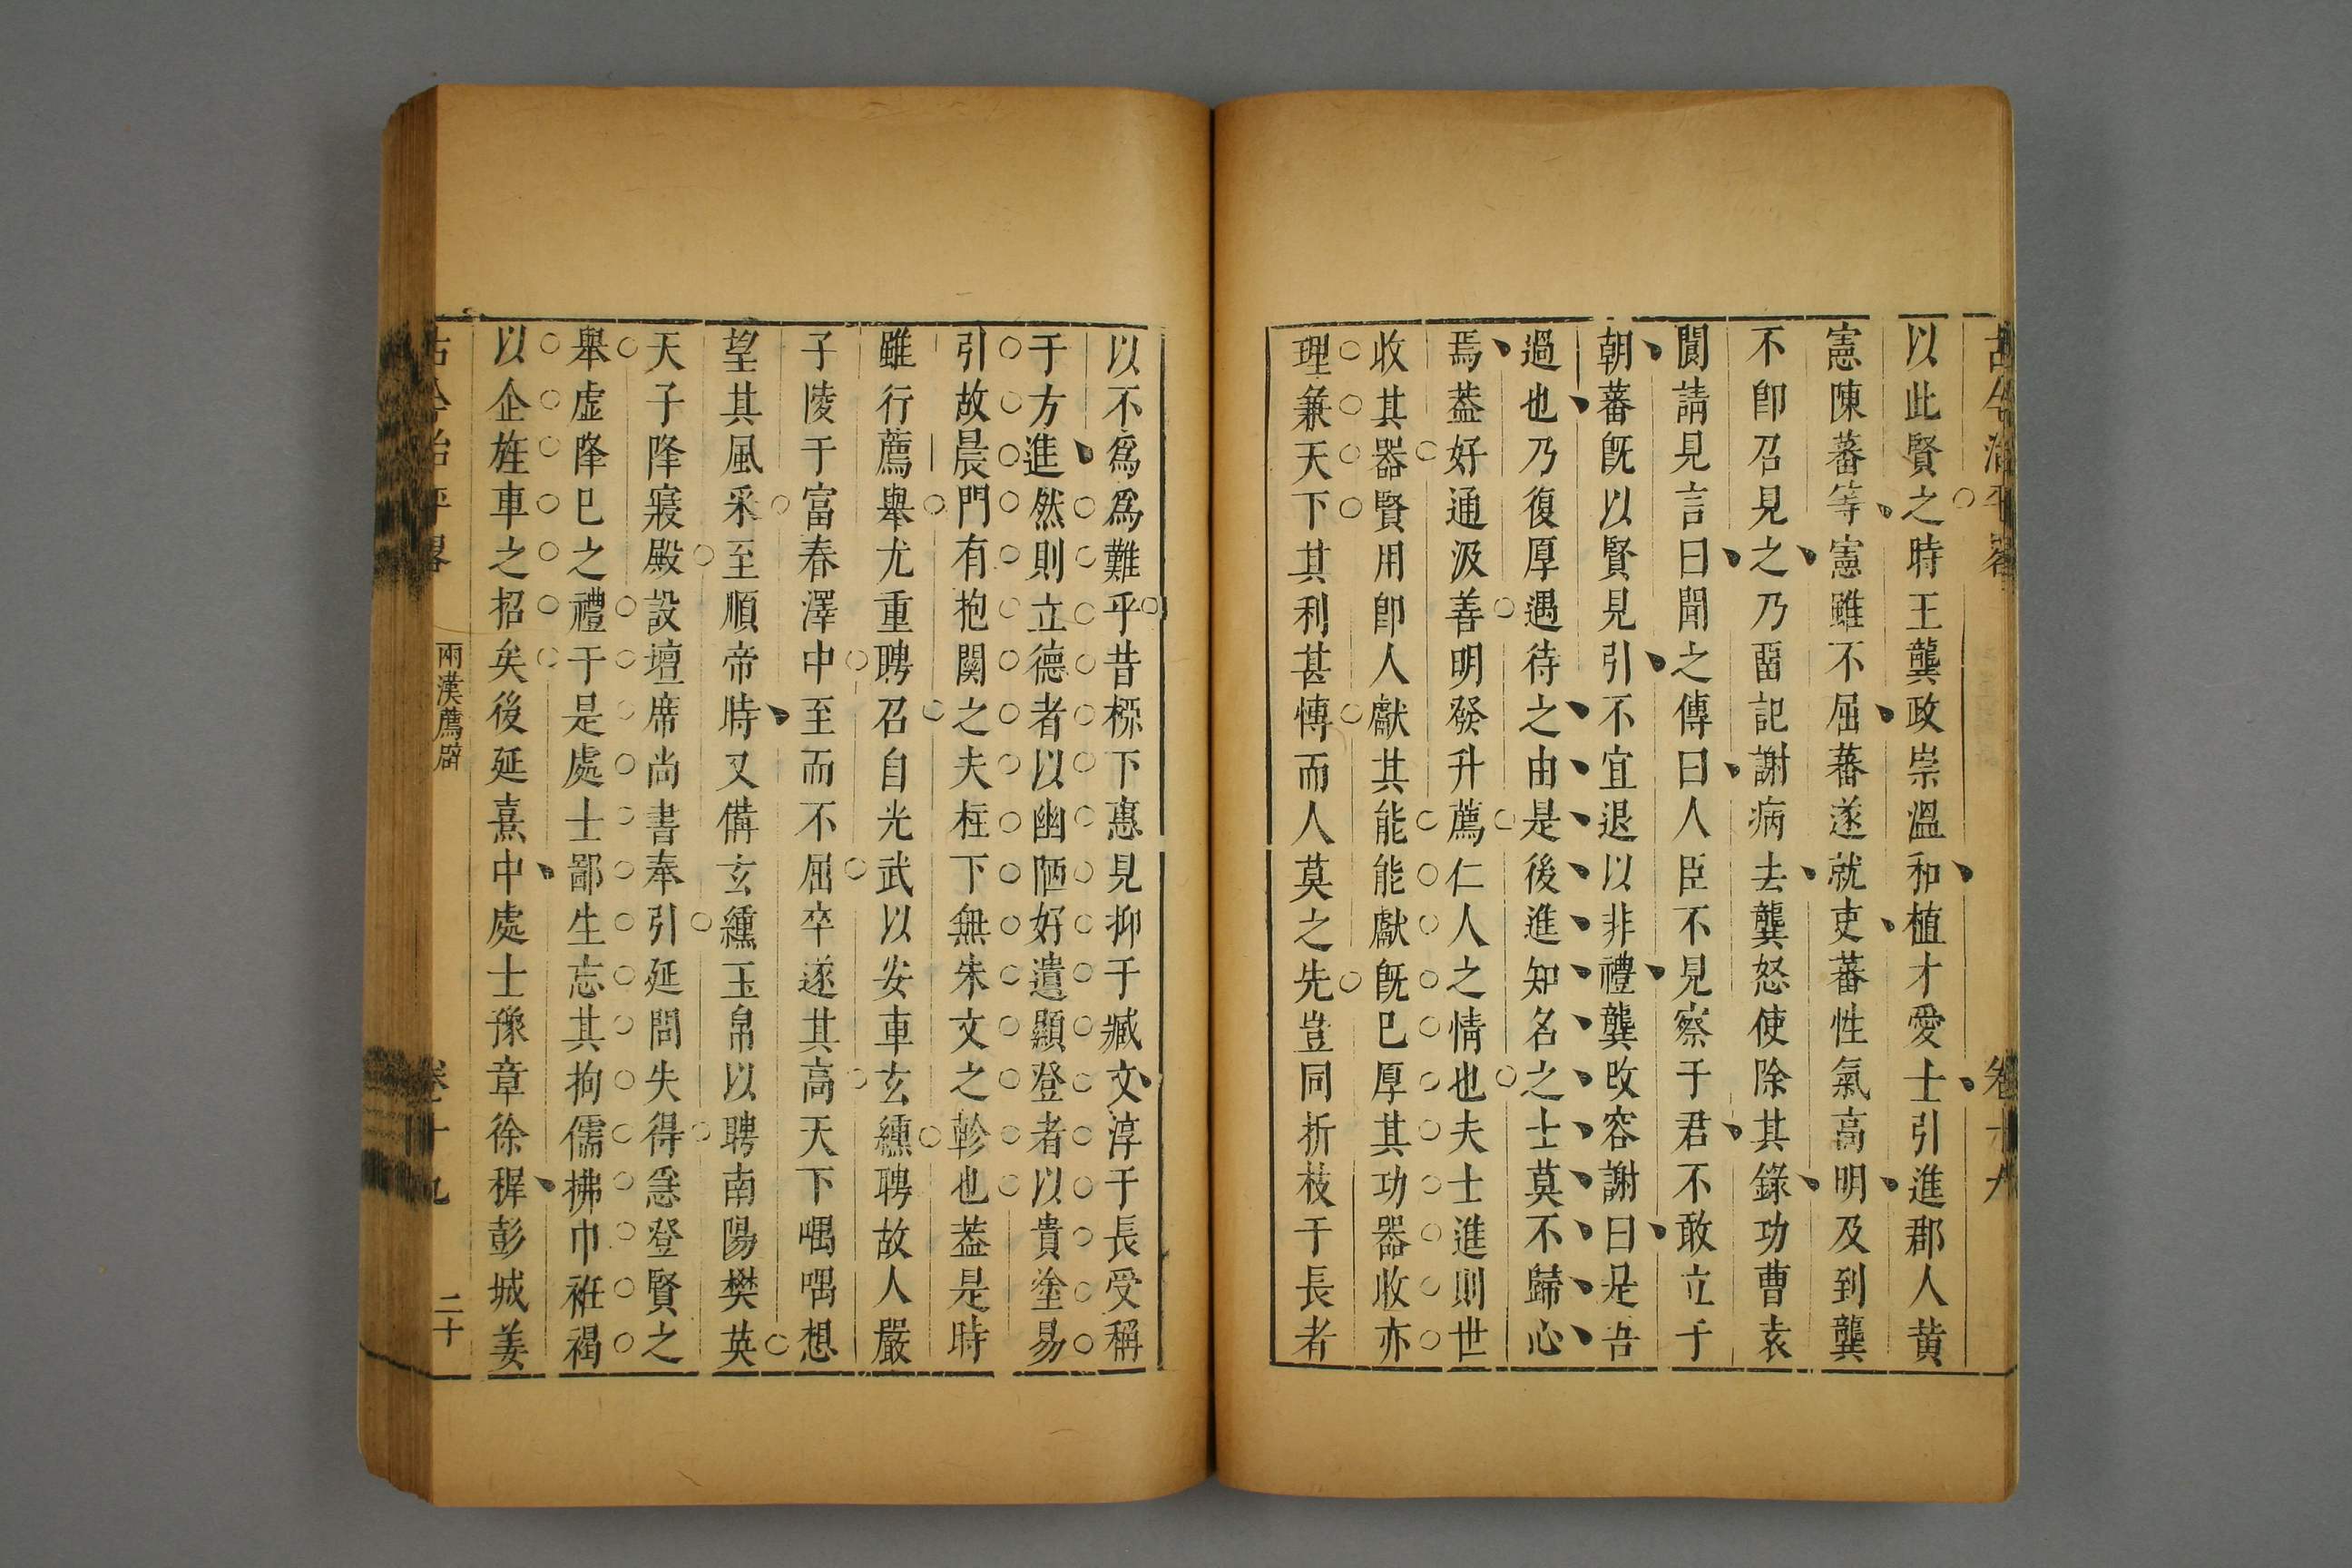 古今治平畧
卷十九
以此賢之時王龔政崇溫和植才愛士引進郡人黃
憲陳蕃等憲雖不屈蕃遂就吏蕃性氣高明及到龔
不卽召見之乃畱記謝病去龔怒使除其錄功曹袁
閬請見言曰聞之傳曰人臣不見察于君不敢立于
朝蕃旣以賢見引不宜退以非禮龔改容謝曰是吾
過也乃復厚遇待之由是後進知名之士莫不歸心
焉葢好通汲善明發升薦仁人之情也夫士進則世
收其器賢用卽人獻其能能獻旣已厚其功器收亦
理兼天下其利甚愽而人莫之先豈同折枝于長者
以不爲爲難乎昔桺下惠見抑于臧文淳于長受稱
于方進然則立德者以幽陋好遺顯登者以貴塗易
引故晨門有抱關之夫柱下無朱文之軫也葢是時
雖行薦舉尤重聘召自光武以安車玄纁聘故人嚴
子陵于富春澤中至而不屈卒遂其高天下喁喁想
望其風采至順帝時又備玄纁玉帛以聘南陽樊英
天子降寢殿設壇席尚書奉引延問失得急登賢之
舉虛降已之禮于是處士鄙生忘其拘儒拂巾袵褐
以企旌車之招矣後延熹中處士豫章徐穉彭城姜
古今治平畧
兩漢薦辟
卷十九
二十